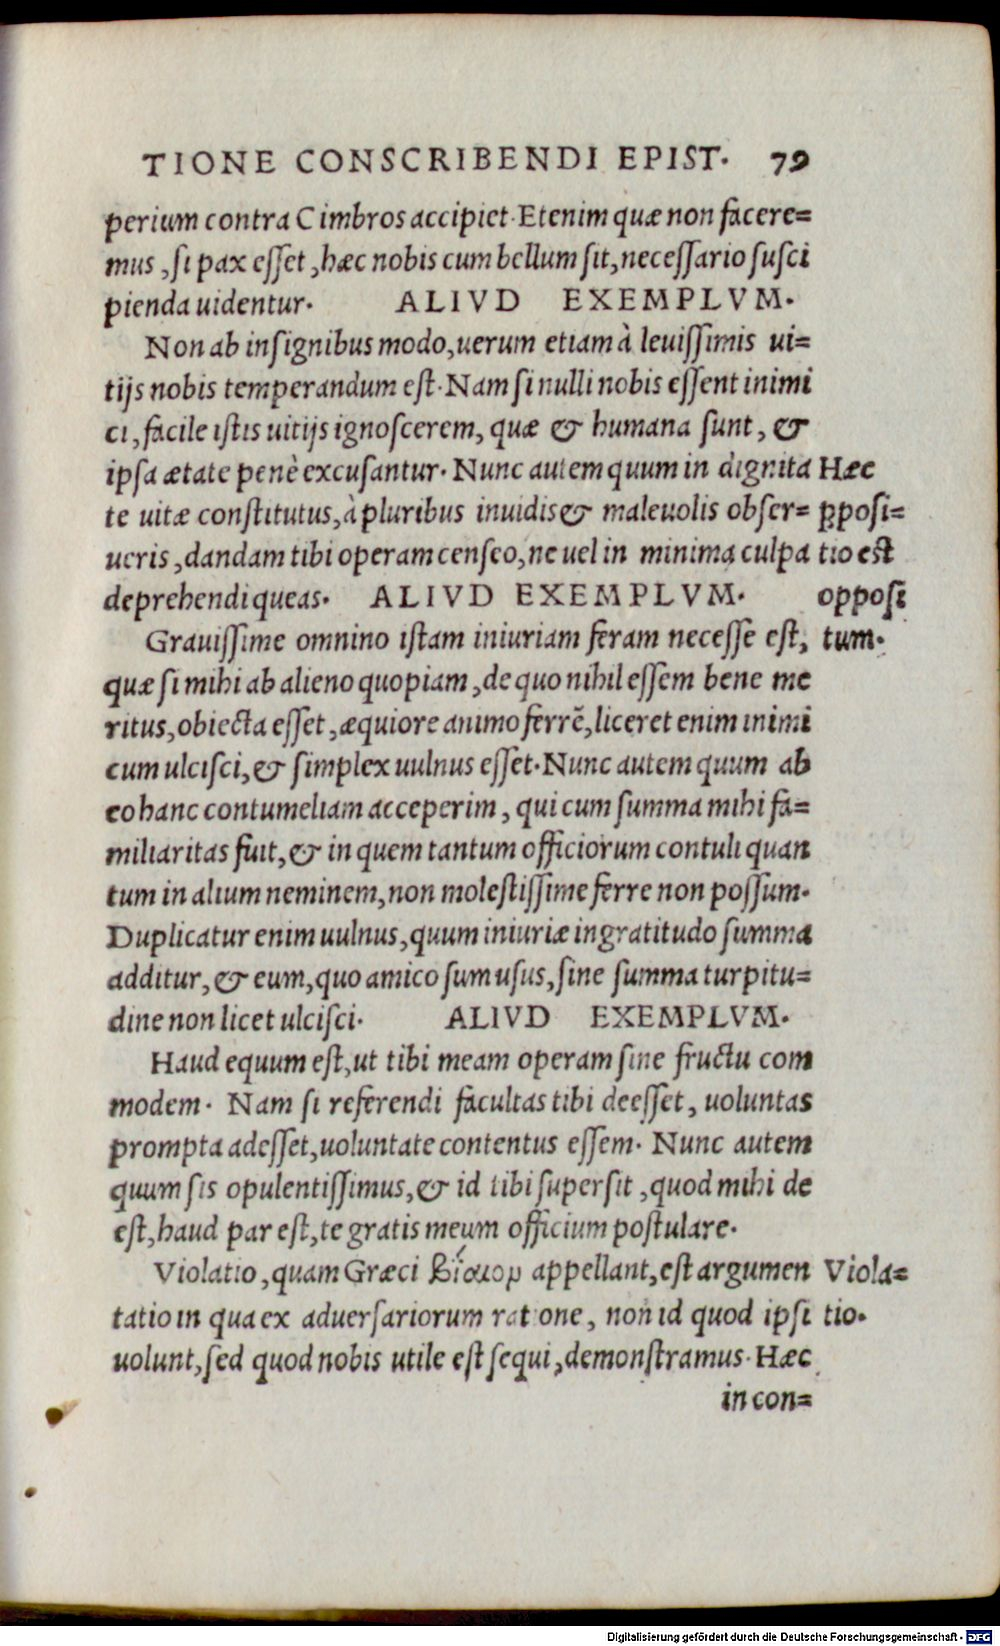 TIONE CONSCRIBENDI EPIST. 79
perium contra Cimbros accipiet. Etenim quæ non facere=
mus, si pax esset, hæc nobis cum bellum sit, necessario susci
pienda uidentur. ALIVD EXEMPLVM.
Non ab insignibus modo, uerum etiam à leuissimis ui=
tijs nobis temperandum est. Nam si nulli nobis essent inimi
ci, facile istis uitijs ignoscerem, quæ & humana sunt, &
ipsa ætate penè excusantur. Nunc autem quum in dignita
te uitæ constitutus, à pluribus inuidis & maleuolis obser=
ueris, dandam tibi operam censeo, ne uel in minima culpa
deprehendi queas. ALIVD EXEMPLVM.
Hæc
ꝓposi=
tio est
opposi
tum.
Grauissime omnino istam iniuriam feram necesse est,
quæ si mihi ab alieno quopiam, de quo nihil essem bene me
ritus, obiecta esset, æquiore animo ferrē, liceret enim inimi
cum ulcisci, & simplex uulnus esset. Nunc autem quum ab
eo hanc contumeliam acceperim, qui cum summa mihi fa=
miliaritas fuit, & in quem tantum officiorum contuli quan
tum in alium neminem, non molestissime ferre non possum.
Duplicatur enim uulnus, quum iniuriæ ingratitudo summa
additur, & eum, quo amico sum usus, sine summa turpitu=
dine non licet ulcisci. ALIVD EXEMPLVM.
Haud equum est, ut tibi meam operam sine fructu com
modem. Nam si referendi facultas tibi deesset, uoluntas
prompta adesset, uoluntate contentus essem. Nunc autem
quum sis opulentissimus, & id tibi supersit, quod mihi de
est, haud par est, te gratis meum officium postulare.
Violatio, quam Græci appellant, est argumen
tatio in qua ex aduersariorum ratione, non id quod ipsi
uolunt, sed quod nobis utile est sequi, demonstramus. Hæc
Viola=
tio.
in con=
Digitalisierung gefördert durch die Deutsche Forschungsgemeinschaft - DFG